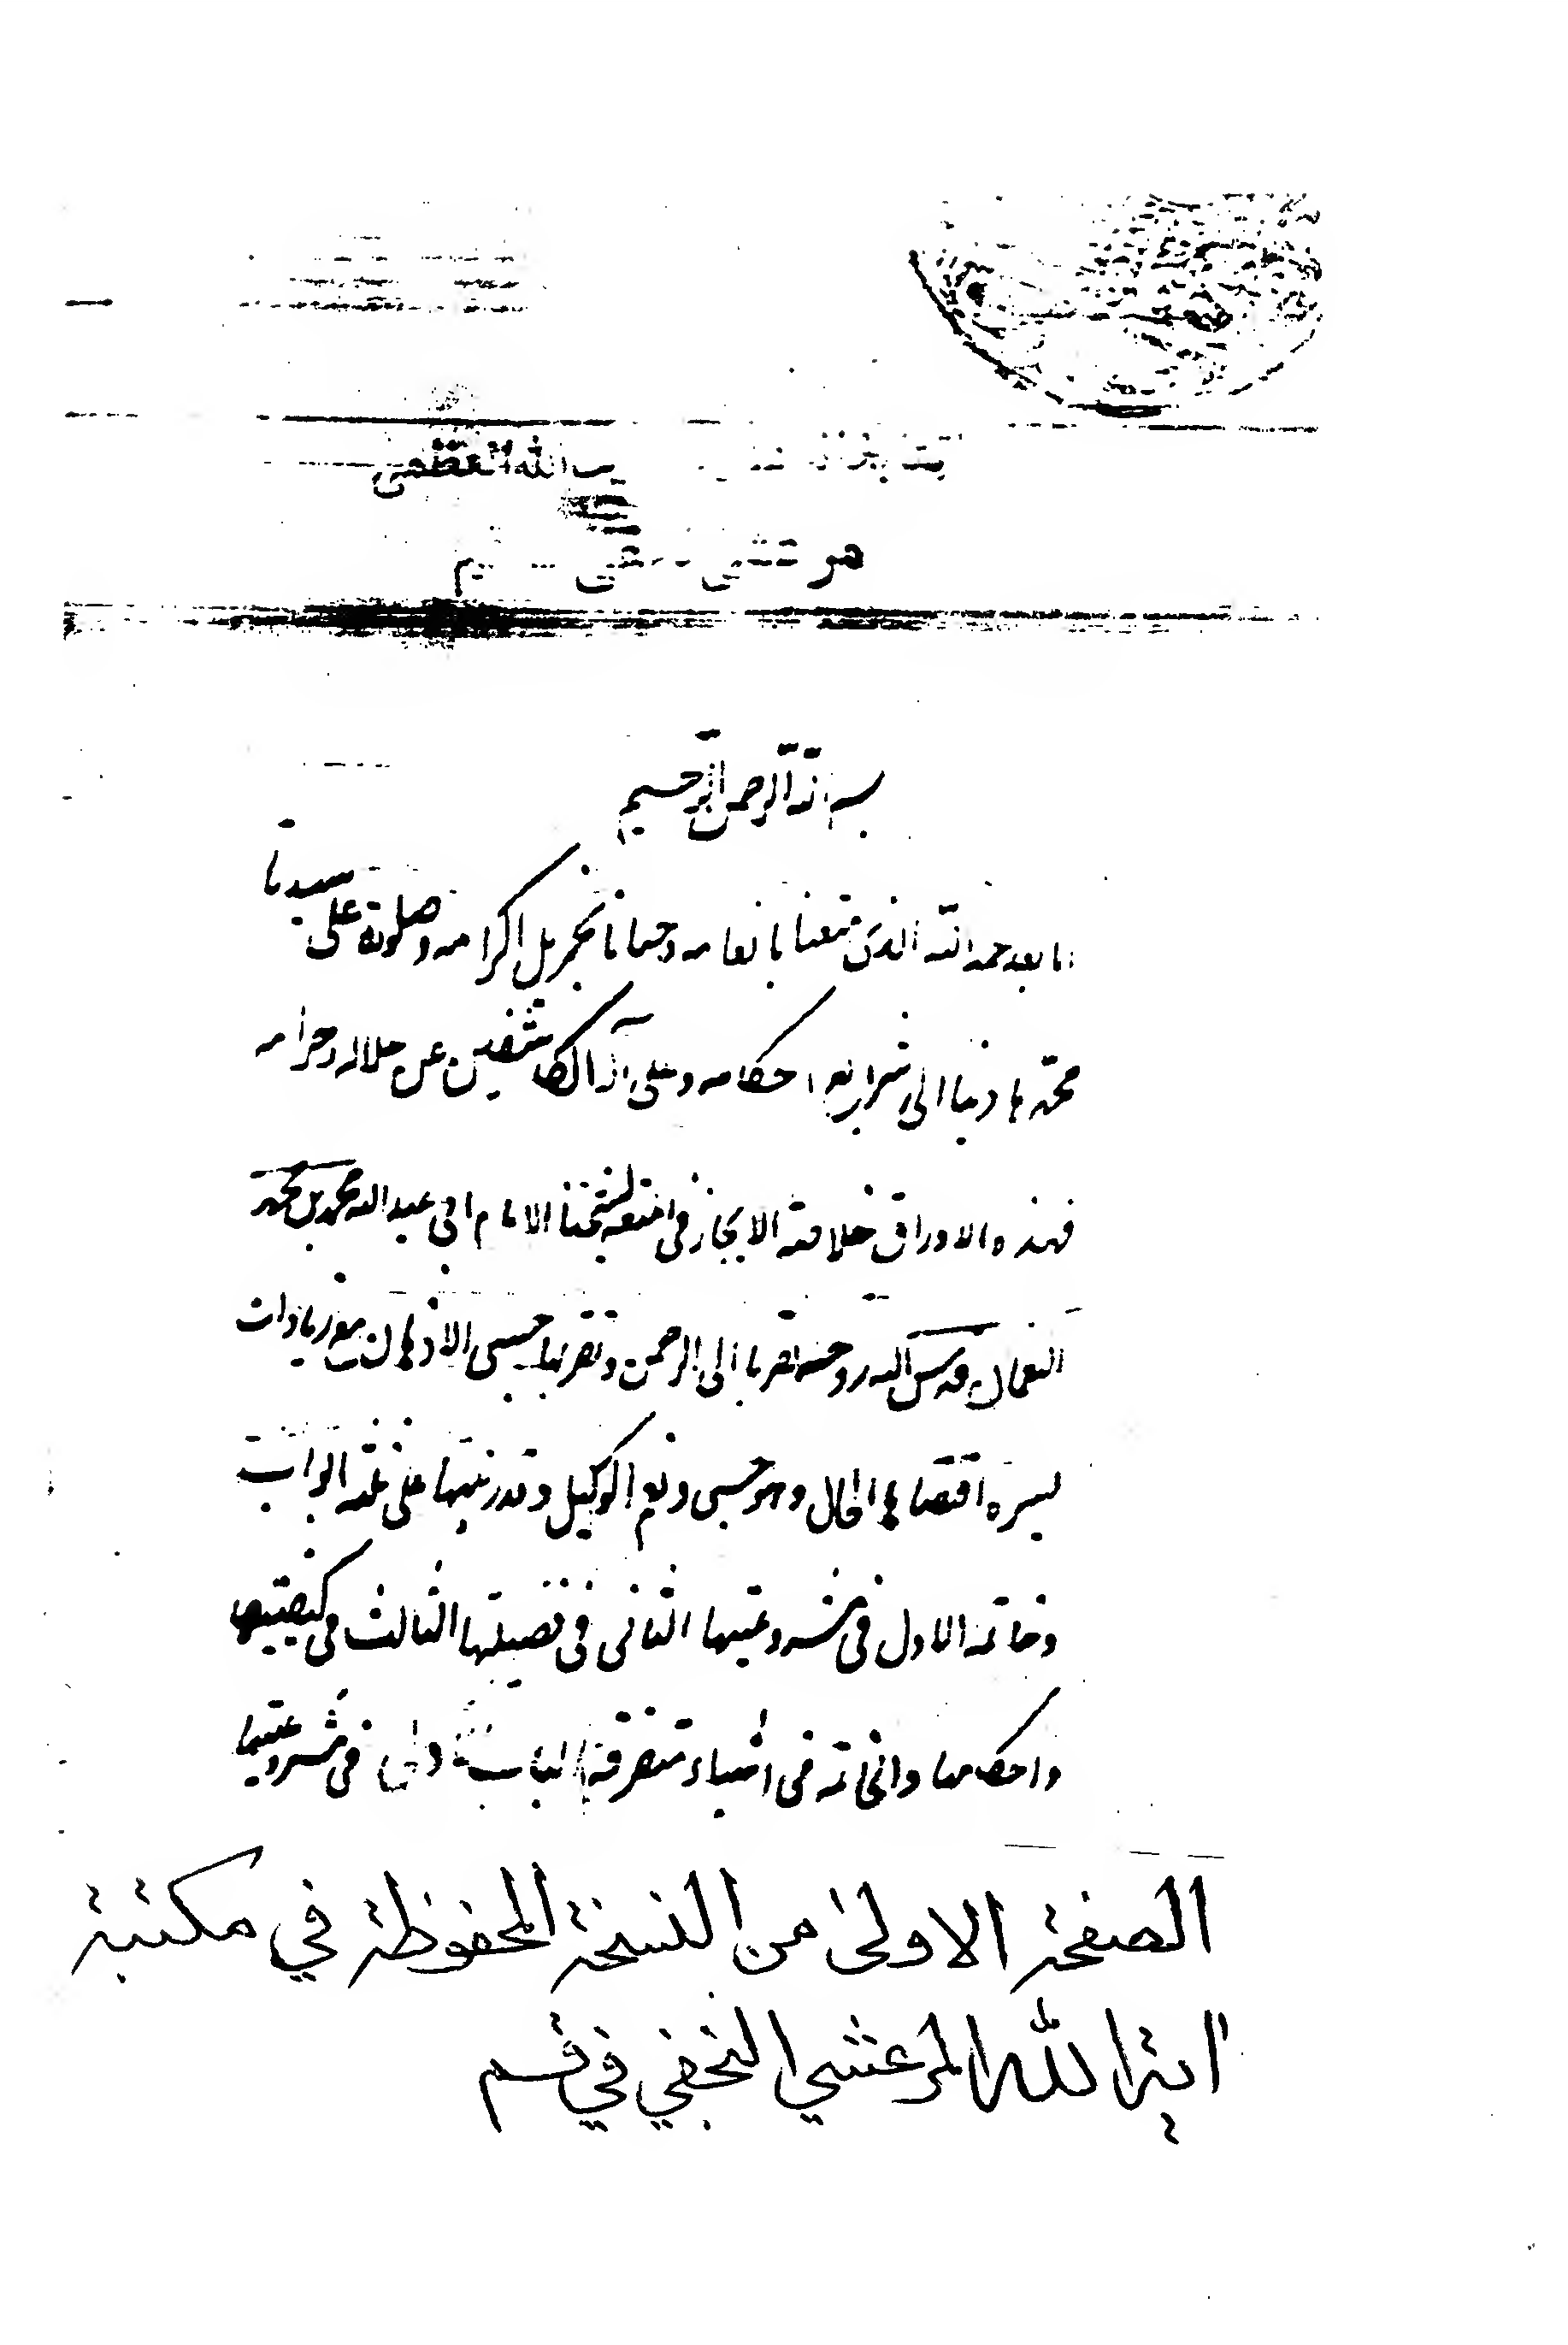 الله العظمى
بسم الله الرحمن الرحيم
اما بعد حمد الله الذي متعنا بانعامه وحبانا بجزيل اكرامه وصلوته على سيدنا
محمد هادينا الى شرايع احكامه وعلى آله الكاشفين عن حلاله وحرامه
فهذه الاوراق خلاصة الايجاز في المتعة لشيخنا الامام ابي عبد الله محمد بن محمد
النعمان قدس الله روحه تقربا الى الرحمن وتقريبا الاذهان مع زيادات
يسيره اقتضاها الحال وهو حسبي ونعم الوكيل وقد رتبتها على ثلثة ابواب
وخاتمه الاول في مشروعيتها الثاني في فضيلتها الثالث في كيفيتها
واحكامها والخاتمه في اشياء متفرقة الباب الاول في مشروعيتها
الصفحة الاولى من النسخة المحفوظة في مكتبة
اية الله المرعشي النجفي في قم